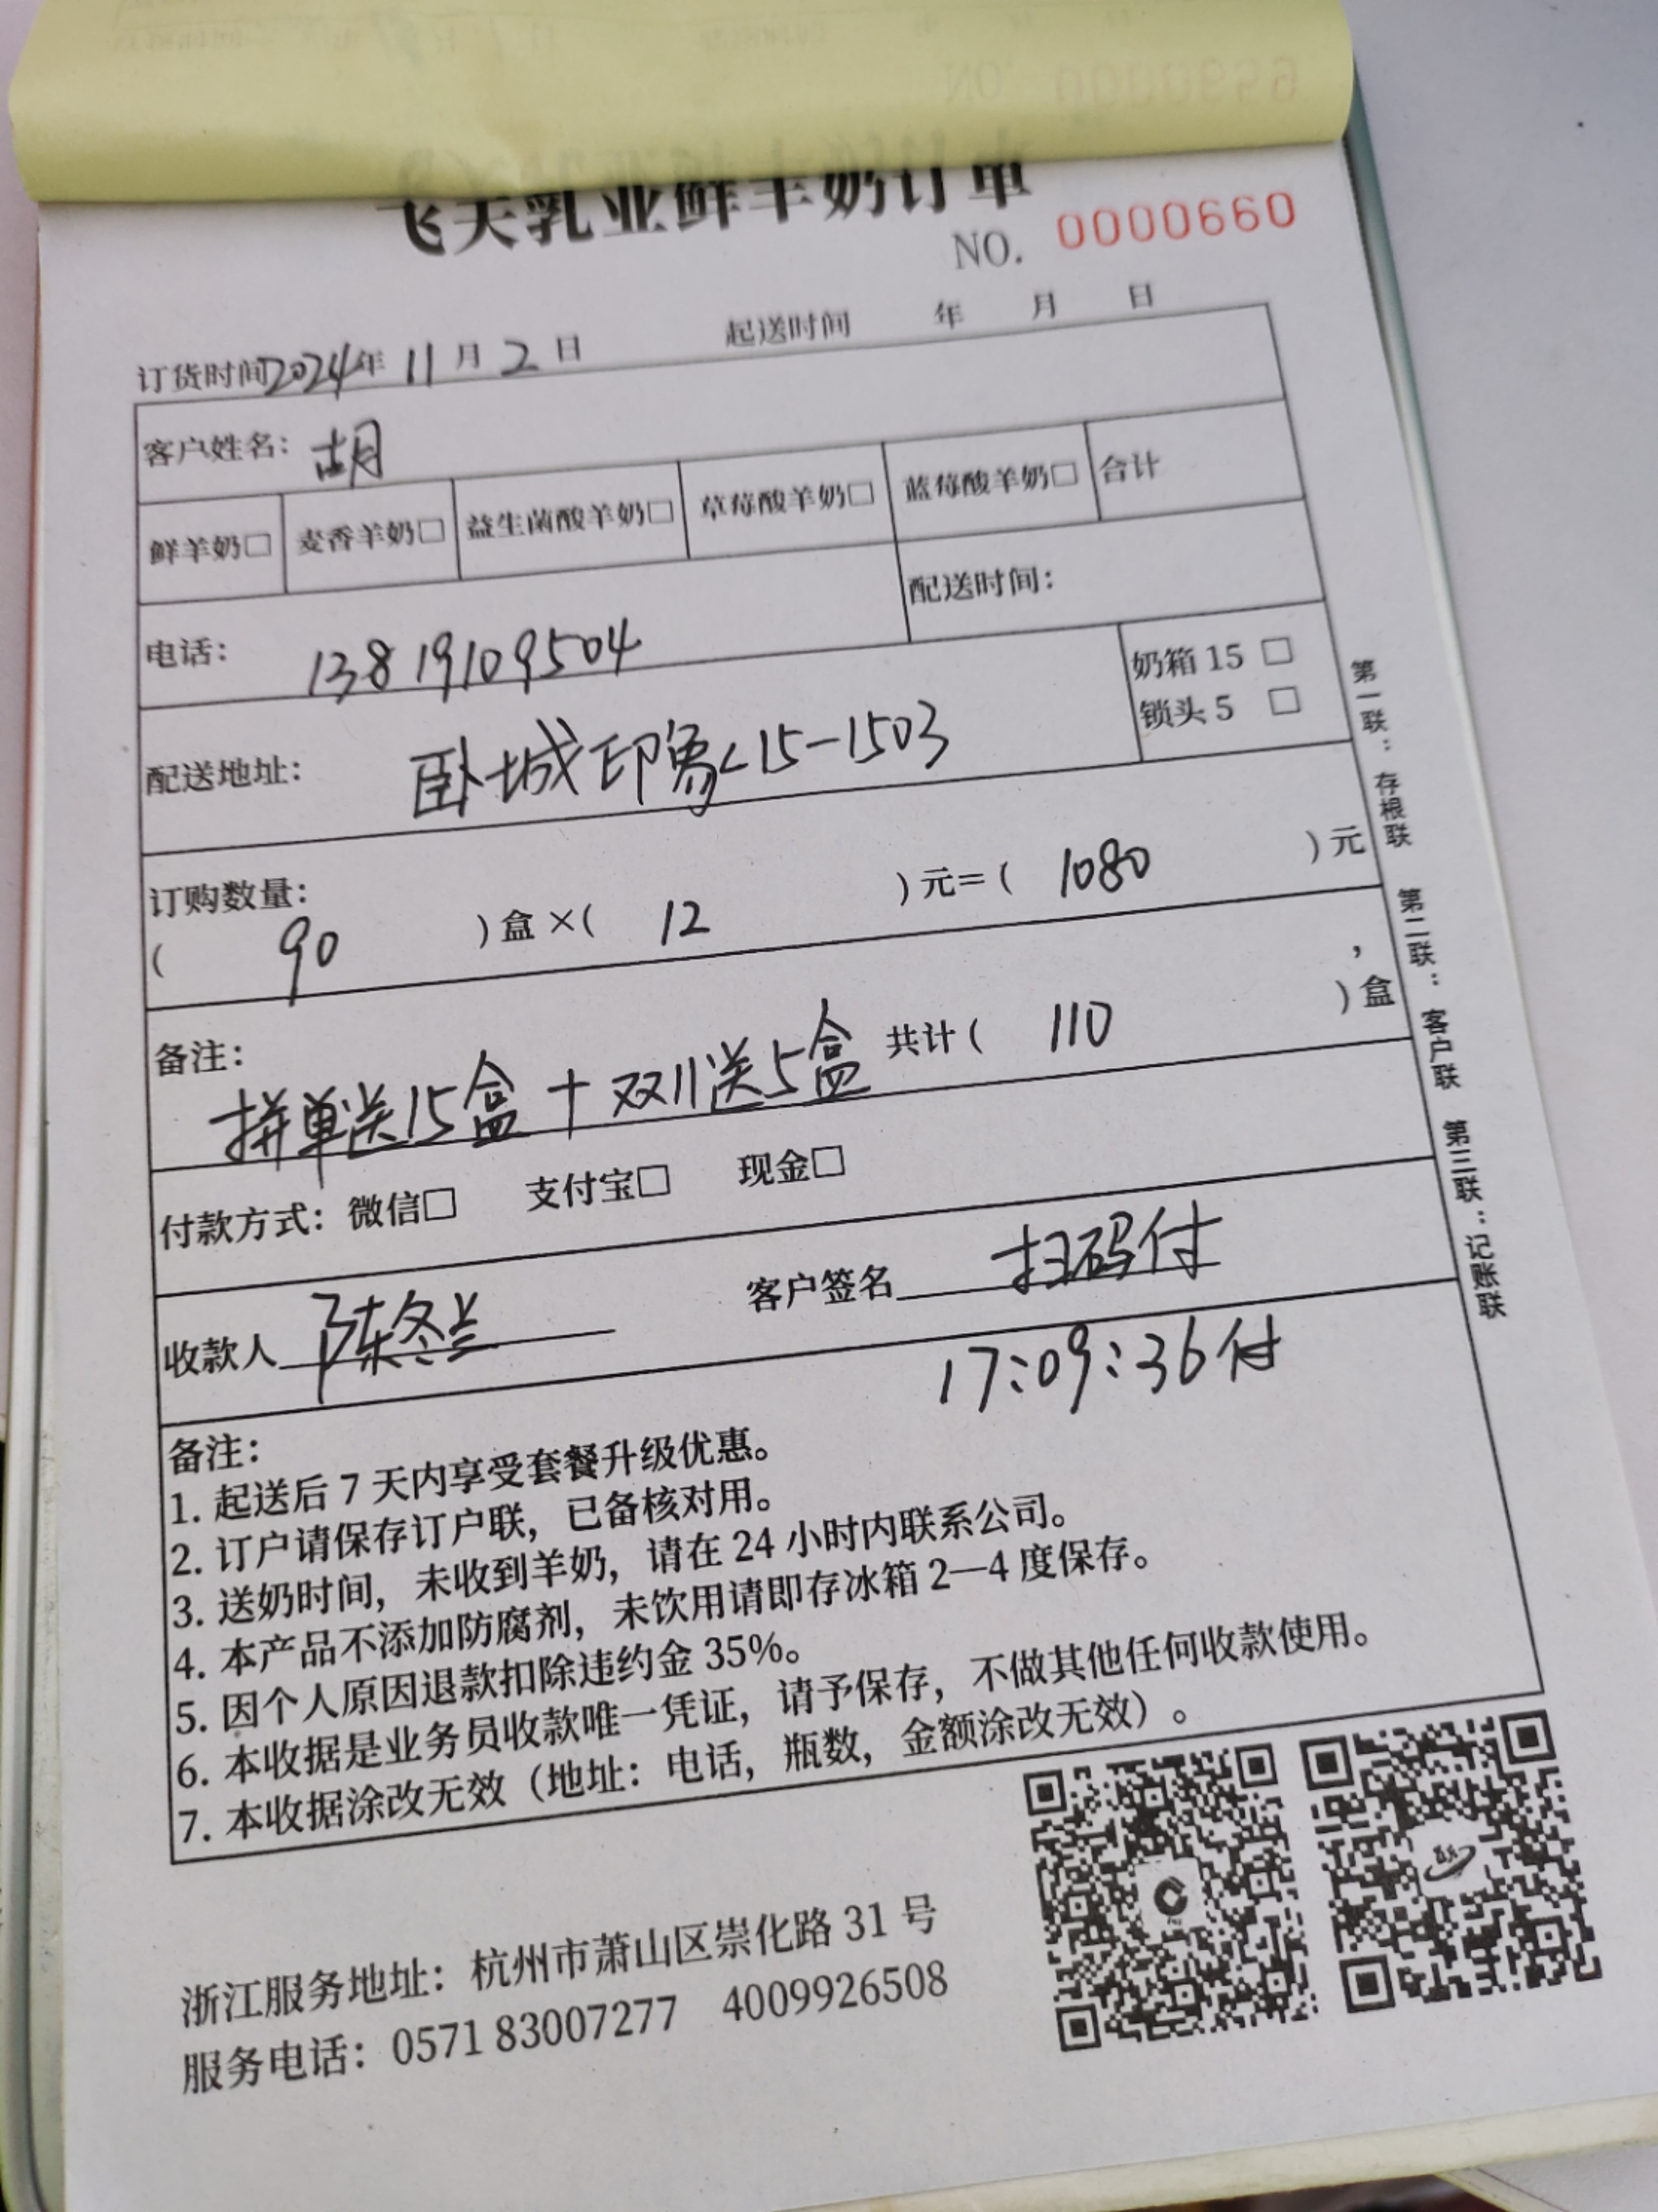 飞天乳业鲜羊奶订单
NO. 0000660
订货时间2024年 11 月 2 日 起送时间 年 月 日
客户姓名: 胡
鲜羊奶□ 麦香羊奶□ 益生菌酸羊奶□ 草莓酸羊奶□ 蓝莓酸羊奶□ 合计
电话: 13819109504 配送时间:
配送地址: 卧城印象<15-1503
奶箱 15 □
锁头 5 □
订购数量:
( 90 ) 盒 ×( 12 ) 元=( 1080 ) 元,
备注:
拼单送15盒 + 双11送5盒 共计( 110 ) 盒
付款方式: 微信□ 支付宝□ 现金□
收款人 陈冬兰 客户签名 扫码付
17:09:36付
备注:
1. 起送后 7 天内享受套餐升级优惠。
2. 订户请保存订户联，已备核对用。
3. 送奶时间，未收到羊奶，请在 24 小时内联系公司。
4. 本产品不添加防腐剂，未饮用请即存冰箱 2—4 度保存。
5. 因个人原因退款扣除违约金 35%。
6. 本收据是业务员收款唯一凭证，请予保存，不做其他任何收款使用。
7. 本收据涂改无效（地址：电话，瓶数，金额涂改无效）。
第一联：存根联 第二联：客户联 第三联：记账联
浙江服务地址：杭州市萧山区崇化路 31 号
服务电话：0571 83007277 4009926508